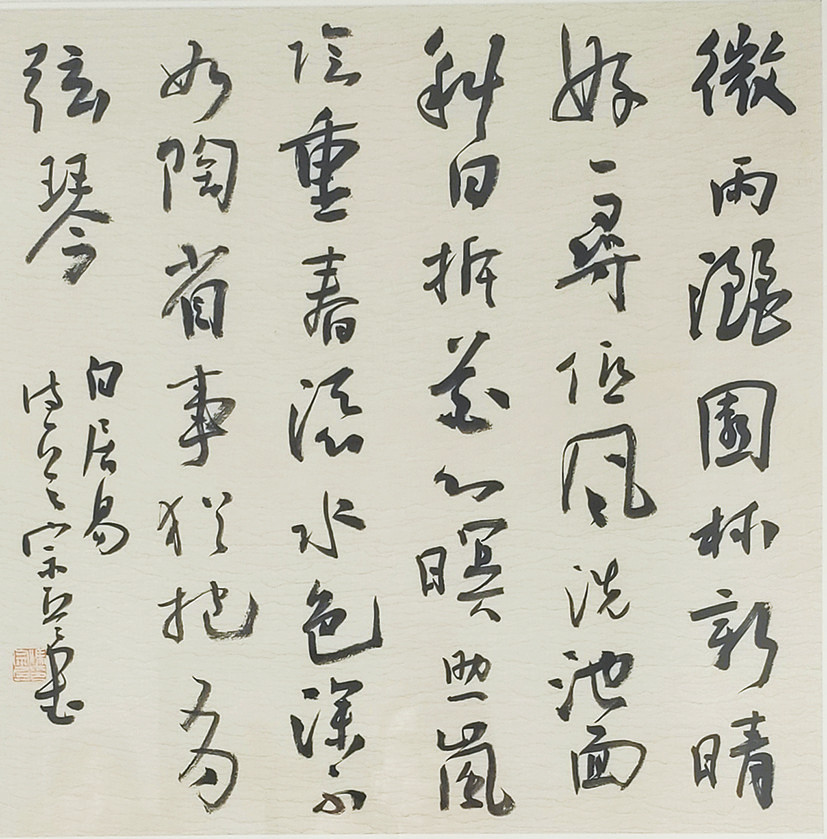 微雨灑園林新晴
好一尋低風洗池面
斜日拆花心暝助嵐
陰重春添水色深不
如陶省事猶抱有
弦琴
白居易
詩